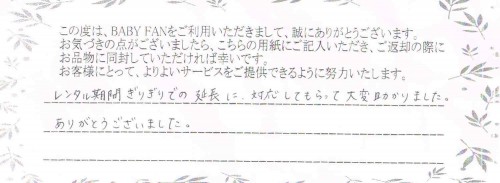 この度は、BABY FANをご利用いただきまして、誠にありがとうございます。
お気づきの点がございましたら、こちらの用紙にご記入いただき、ご返却の際に
お品物に同封していただければ幸いです。
お客様にとって、よりよいサービスをご提供できるように努力いたします。
レンタル期間ぎりぎりでの延長に、対応してもらって大変助かりました。
ありがとうございました。